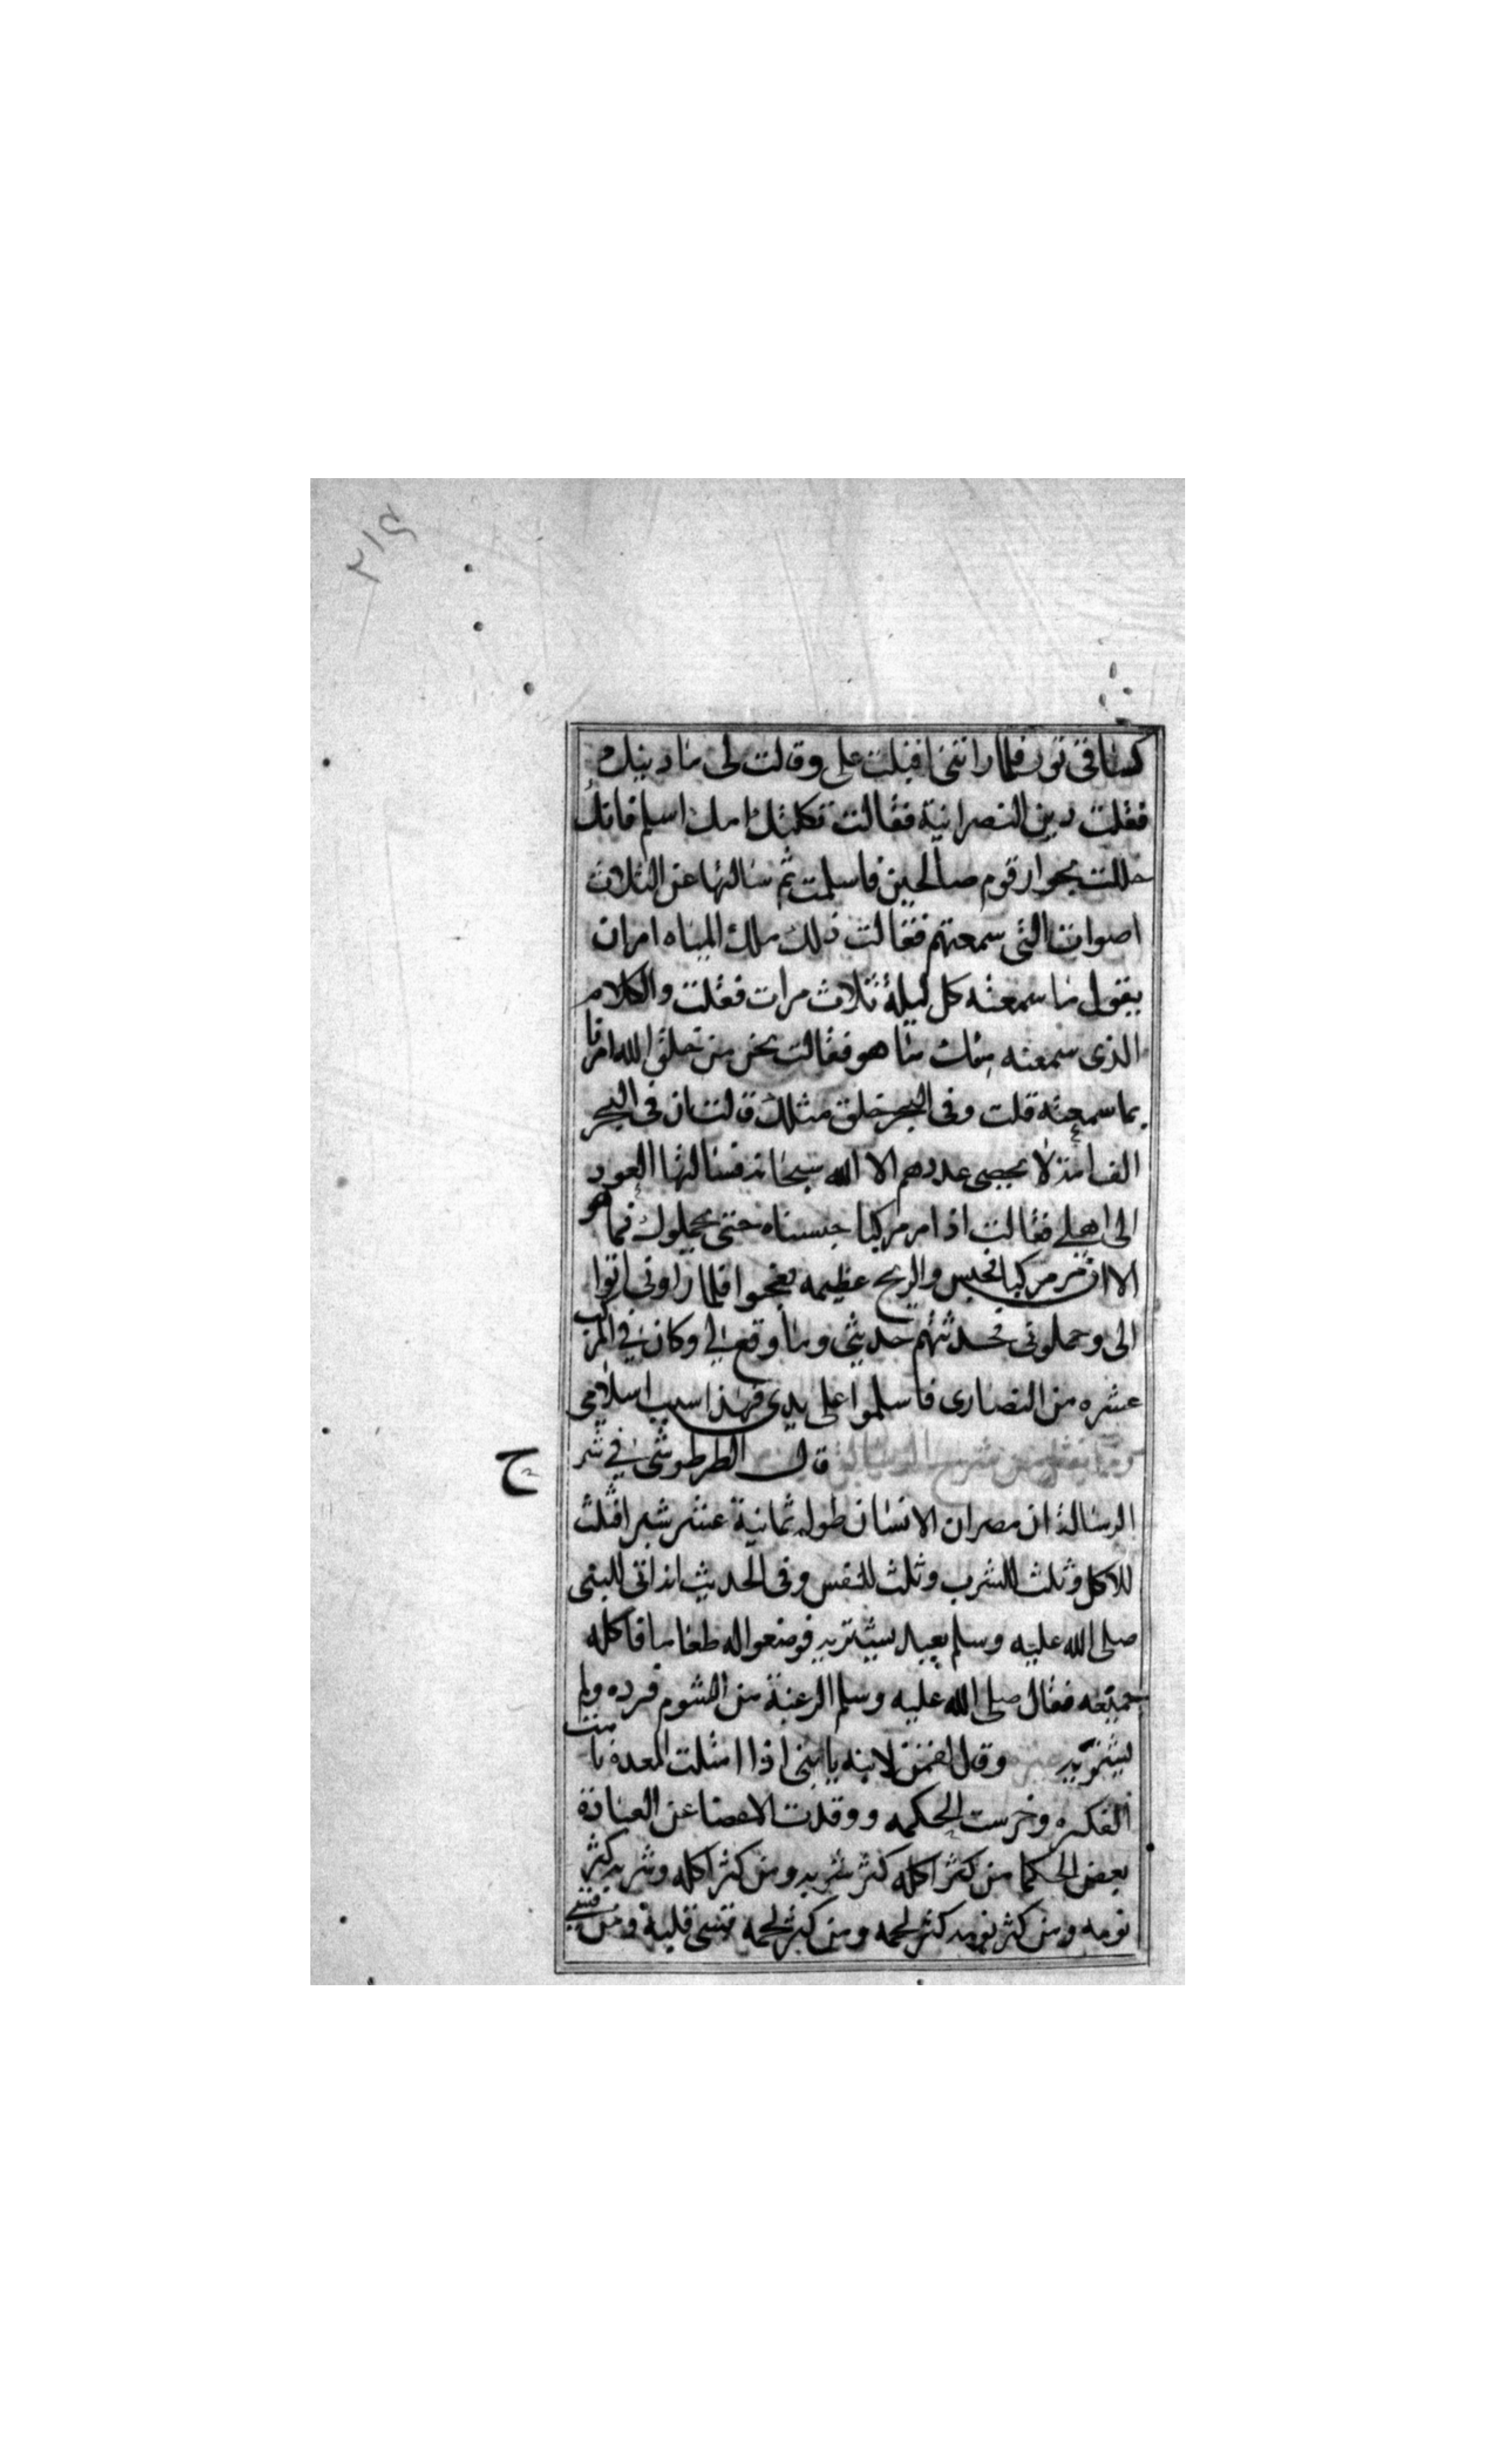 ٢١٤
كساقى ثور فلما راتنى اقبلت على وقالت لى ما دينك
فقلت دين النصرانية فقالت ثكلتك امك اسلم فانك
حللت بجوار قوم صالحين فاسلمت ثم سالتها عن الثلاث
اصوات التى سمعتهم فقالت ذلك ملك المياه امر ان
يقول ما سمعته كل ليلة ثلاث مرات فقلت والكلام
الذى سمعته منك ما هو فقالت نحن من خلق الله امرنا
بما سمعته قلت وفى البحر خلق مثلك قالت ان فى البحر
الف امة لا يحصى عددهم الا الله سبحانه فسالتها العود
الى اهلى فقالت اذا مر مركبا حبسناه حتى يحملوك فما هو
الا ان مر مركبا فحبس والريح عظيمه فعجبوا فلما راونى اتوا
الى وحملونى فحدثتهم حديثى وما وقع لى وكان فى المركب
عشره من النصارى فاسلموا على يدى فهذا سبب اسلامى
ومما نقل من شرح الرسالة قال الطرطوشى فى شر
ح
الرسالة ان مصران الانسان طوله ثمانية عشر شبرا فثلث
للاكل وثلث للشرب وثلث للنفس وفى الحديث انه اتى للنبى
صلى الله عليه وسلم بعبد يشتريه فوضعوا له طعاما فاكله
جميعه فقال صلى الله عليه وسلم الرغبة من الشوم فرده ولم
يشتريه وقال لقمن لابنه يا بنى اذا امتلت المعدة نامت
الفكره وخرست الحكمه ووقدت الاعضا عن العبادة
بعض الحكما من كثر اكله كثر شربه ومن كثر اكله وشربه كثر
نومه ومن كثر نومه كثر لحمه ومن كثر لحمه قسى قلبه ومن قسى